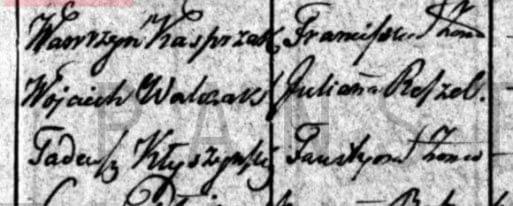 Wawrzyn Kasprzak Franciszka Żona
Wojciech Walczak Julianna Reszel.
Tadeusz Kłyszyński Faustyna Żona